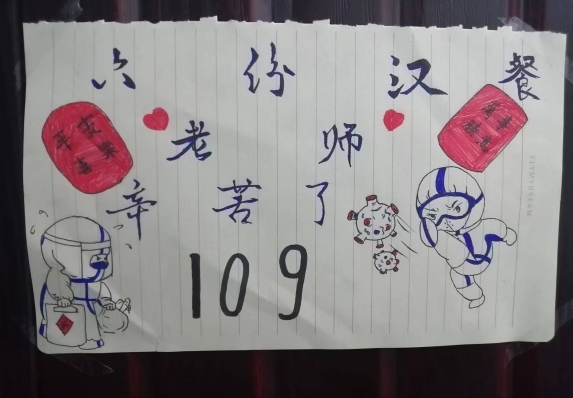 六份汉餐
平安喜乐
老师
辛苦了
109